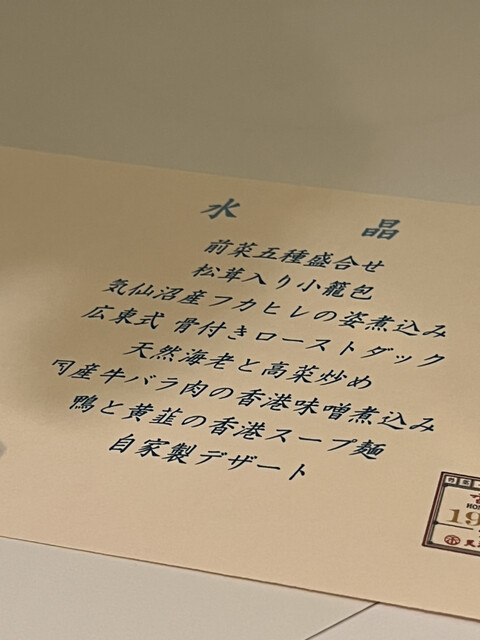 水晶
前菜五種盛合せ
松茸入り小籠包
気仙沼産フカヒレの姿煮込み
広東式 骨付きローストダック
天然海老と高菜炒め
国産牛バラ肉の香港味噌煮込み
鴨と黄韮の香港スープ麺
自家製デザート
19